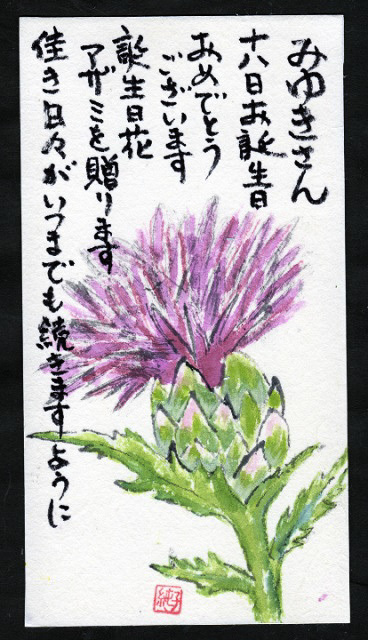 みゆきさん
十八日お誕生日
おめでとう
ございます
誕生日花
アザミを贈ります
佳き日々がいつまでも続きますように
純子